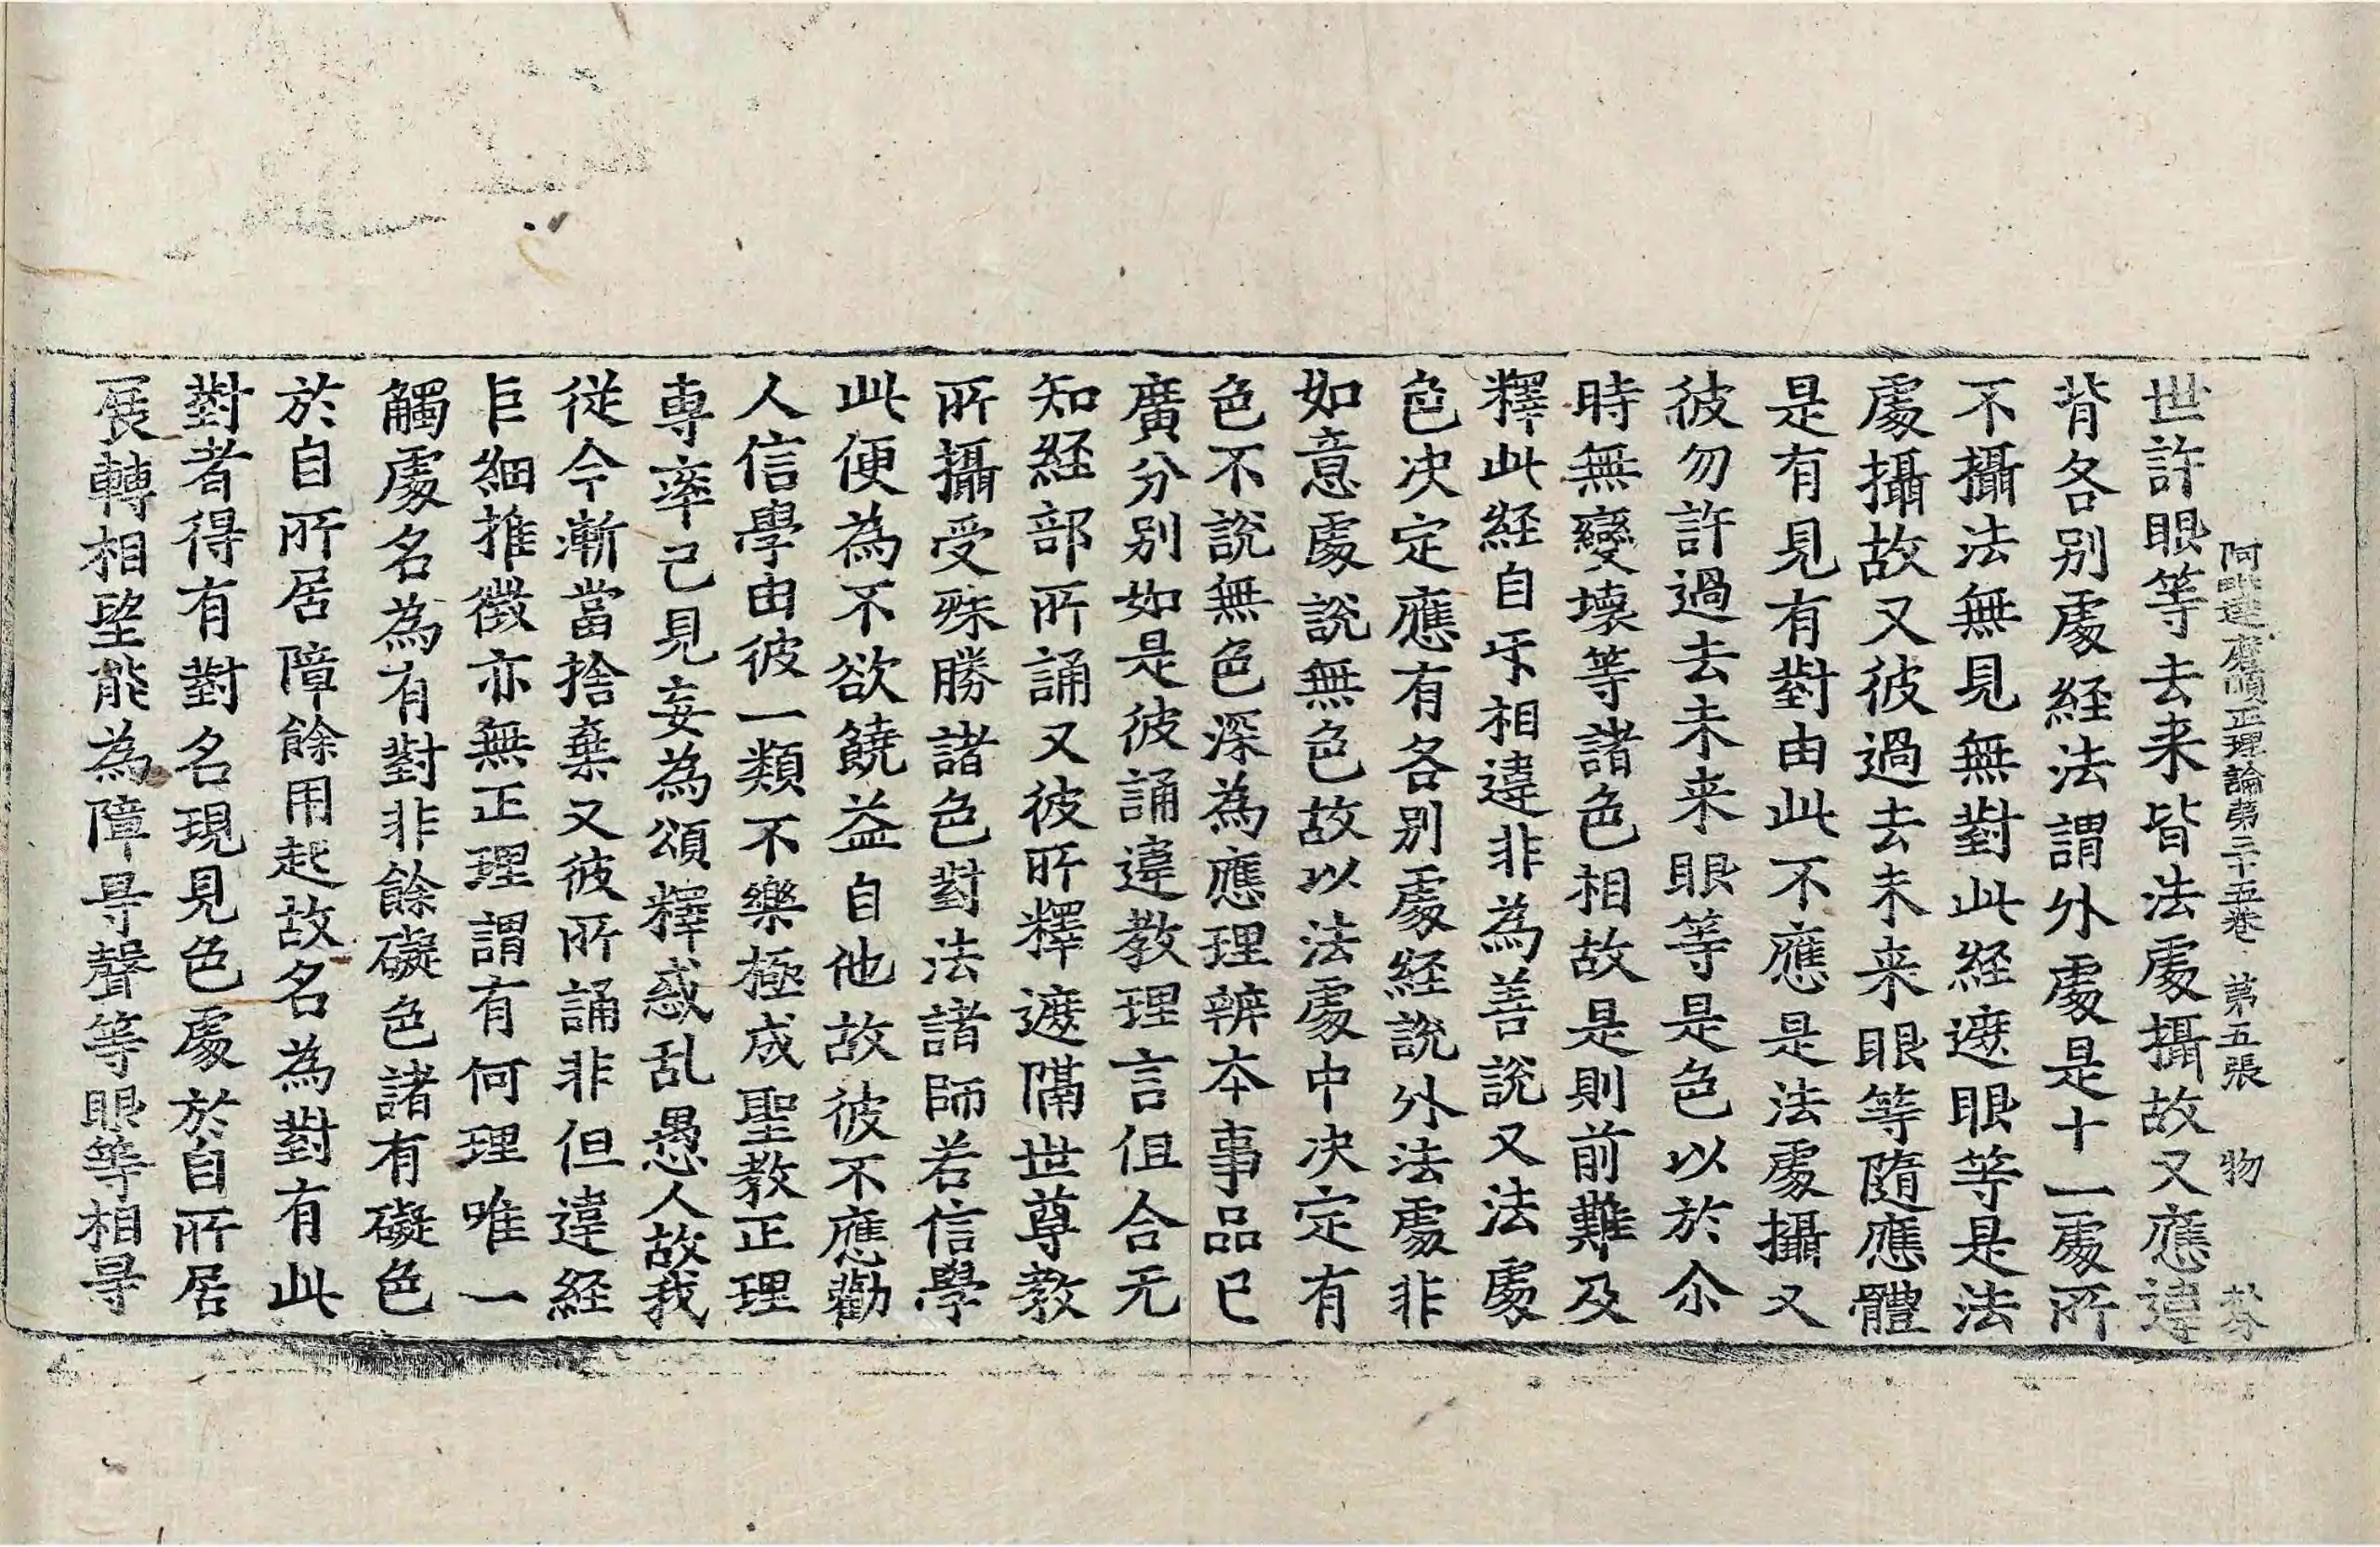 阿毗達磨順正理論第三十五卷 第五張 物
世許眼等去来皆法處攝故又應違
背各別處経法謂外處是十一處所
不攝法無見無對此経遮眼等是法
處攝故又彼過去未来眼等隨應體
是有見有對由此不應是法處攝又
彼勿許過去未来眼等是色以於尒
時無變壞等諸色相故是則前難及
釋此経自㸦相違非為善說又法處
色决定應有各別處経說外法處非
如意處說無色故以法處中决定有
色不說無色深為應理辨本事品已
廣分別如是彼誦違教理言但合无
知経部所誦又彼所釋遮隔世尊教
所攝受殊勝諸色對法諸師若信學
此便為不欲饒益自他故彼不應勸
人信學由彼一類不樂極成聖教正理
專率己見妄為頌釋惑乱愚人故我
従今漸當捨棄又彼所誦非但違経
巨細推徵亦無正理謂有何理唯一
觸處名為有對非餘礙色諸有礙色
於自所居障餘用起故名為對有此
對者得有對名現見色處於自所居
展轉相望能為障㝵聲等眼等相㝵